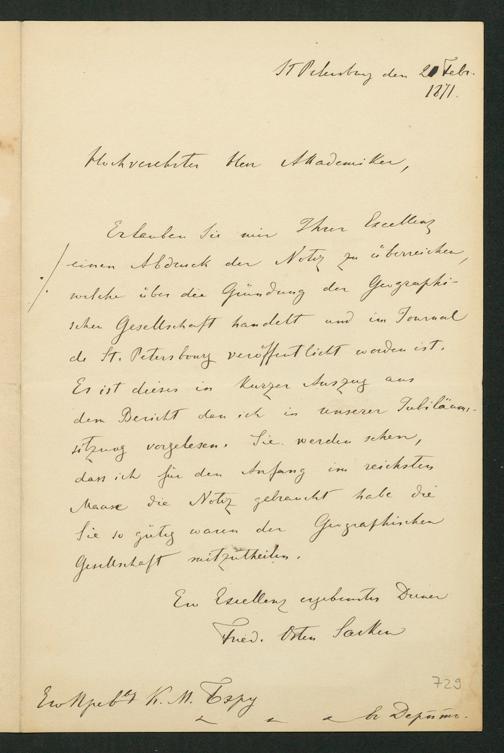 St Petersburg den 20 Febr.
1871.
Hochverehrter Herr Akademiker,
Erlauben Sie mir Ihrer Excellenz
einen Abdruck der Notiz zu überreichen,
welche über die Gründung der Geographi-
schen Gesellschaft handelt und im Journal
de St. Petersbourg veröffentlicht worden ist.
Es ist dieses in kurzer Auszug aus
dem Bericht den ich in unserer Jubiläums-
sitzung vorgelesen. Sie werden sehen,
dass ich für den Anfang im reichsten
Maase die Notiz gebraucht habe die
Sie so gütig waren der Geographischen
Gesellschaft mitzutheilen.
Ew Excellenz ergebenster Diener
Fried. Osten Sacken
729
Его Прев. К. М. Бэру
въ Дерптѣ.